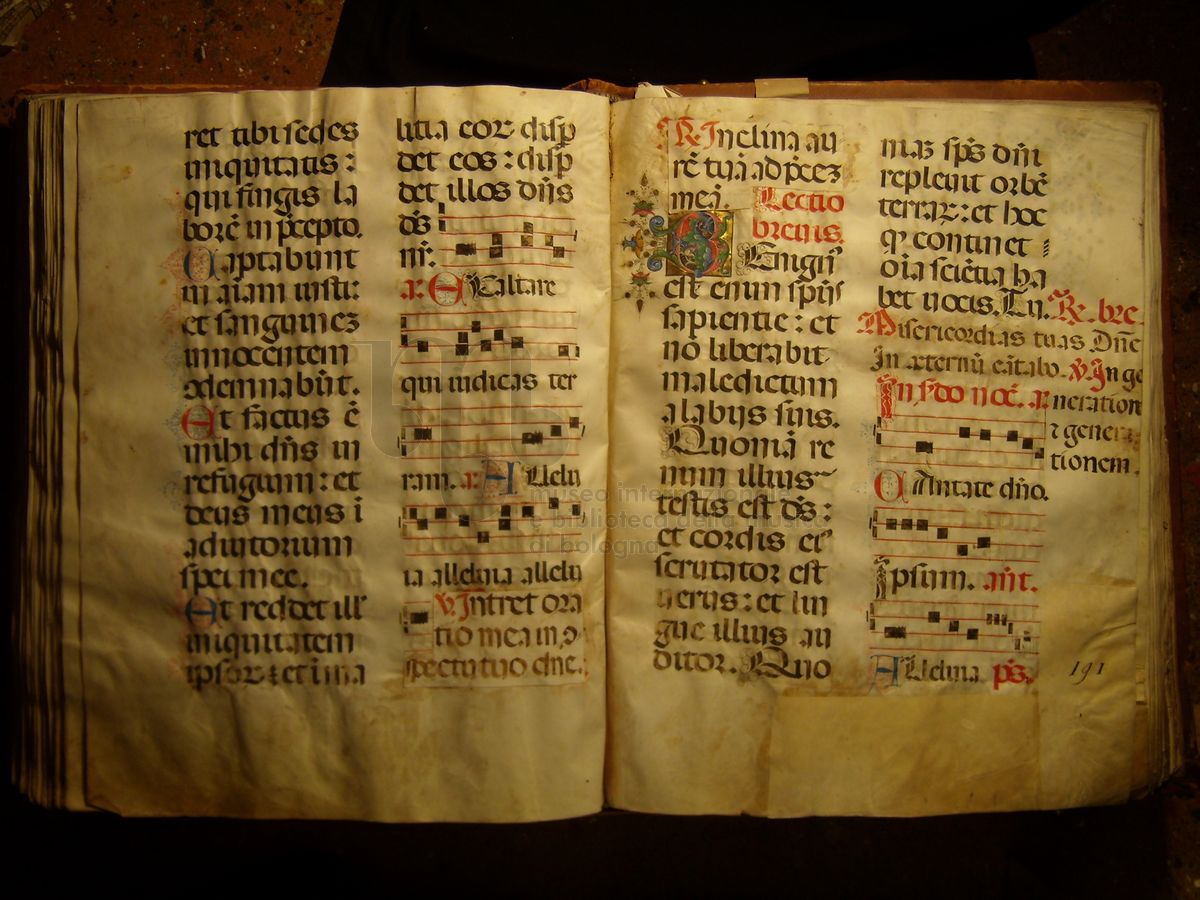 ret tibi sedes
iniquitatis:
qui fingis la
borē in p̄cepto.
Captabunt
in aīam iusti:
et sanguineꝫ
innocentem
ꝯdemnabūt.
Et factus ē
mihi dn̄s in
refugium: et
deus meus ī
adiutorium
spei mee.
Et reddet ill'
iniquitatem
ipsoꝝ: et in ma
litia eoꝝ disp̱
det eos: disp̱
det illos dn̄s
ds̄
nr̄.
a: Exaltare
qui iudicas ter
ram. a: Allelu
ia alleluia allelu
v. Intret ora
tio mea in ꝯ
spectu tuo dne.
R. Inclina au
rē tuā ad p̄ceꝫ
meā. Lectio
brevis.
Benign'
est enim spūs
sapientie: et
nō liberabit
maledictum
a labijs suis.
Quoniā re
num illius
testis est ds̄:
et cordis ei'
scrutator est
verus: et lin
gue illius au
ditor. Quo
niaꝫ sps̄ dn̄i
replevit orbē
terraꝝ: et hoc
qͩ continet
oīa sciētia ha
bet vocis. Tu. R. bre.
Misericordias tuas Dn̄e
In æternū cātabo. v. In ge
neration
⁊ genera
tionem.
In s̄do noc̄. a:
Cantate dn̄o.
Ipsum. an̄t.
Alleluia ps̄.
191
museo internazionale
e biblioteca della musica
di bologna